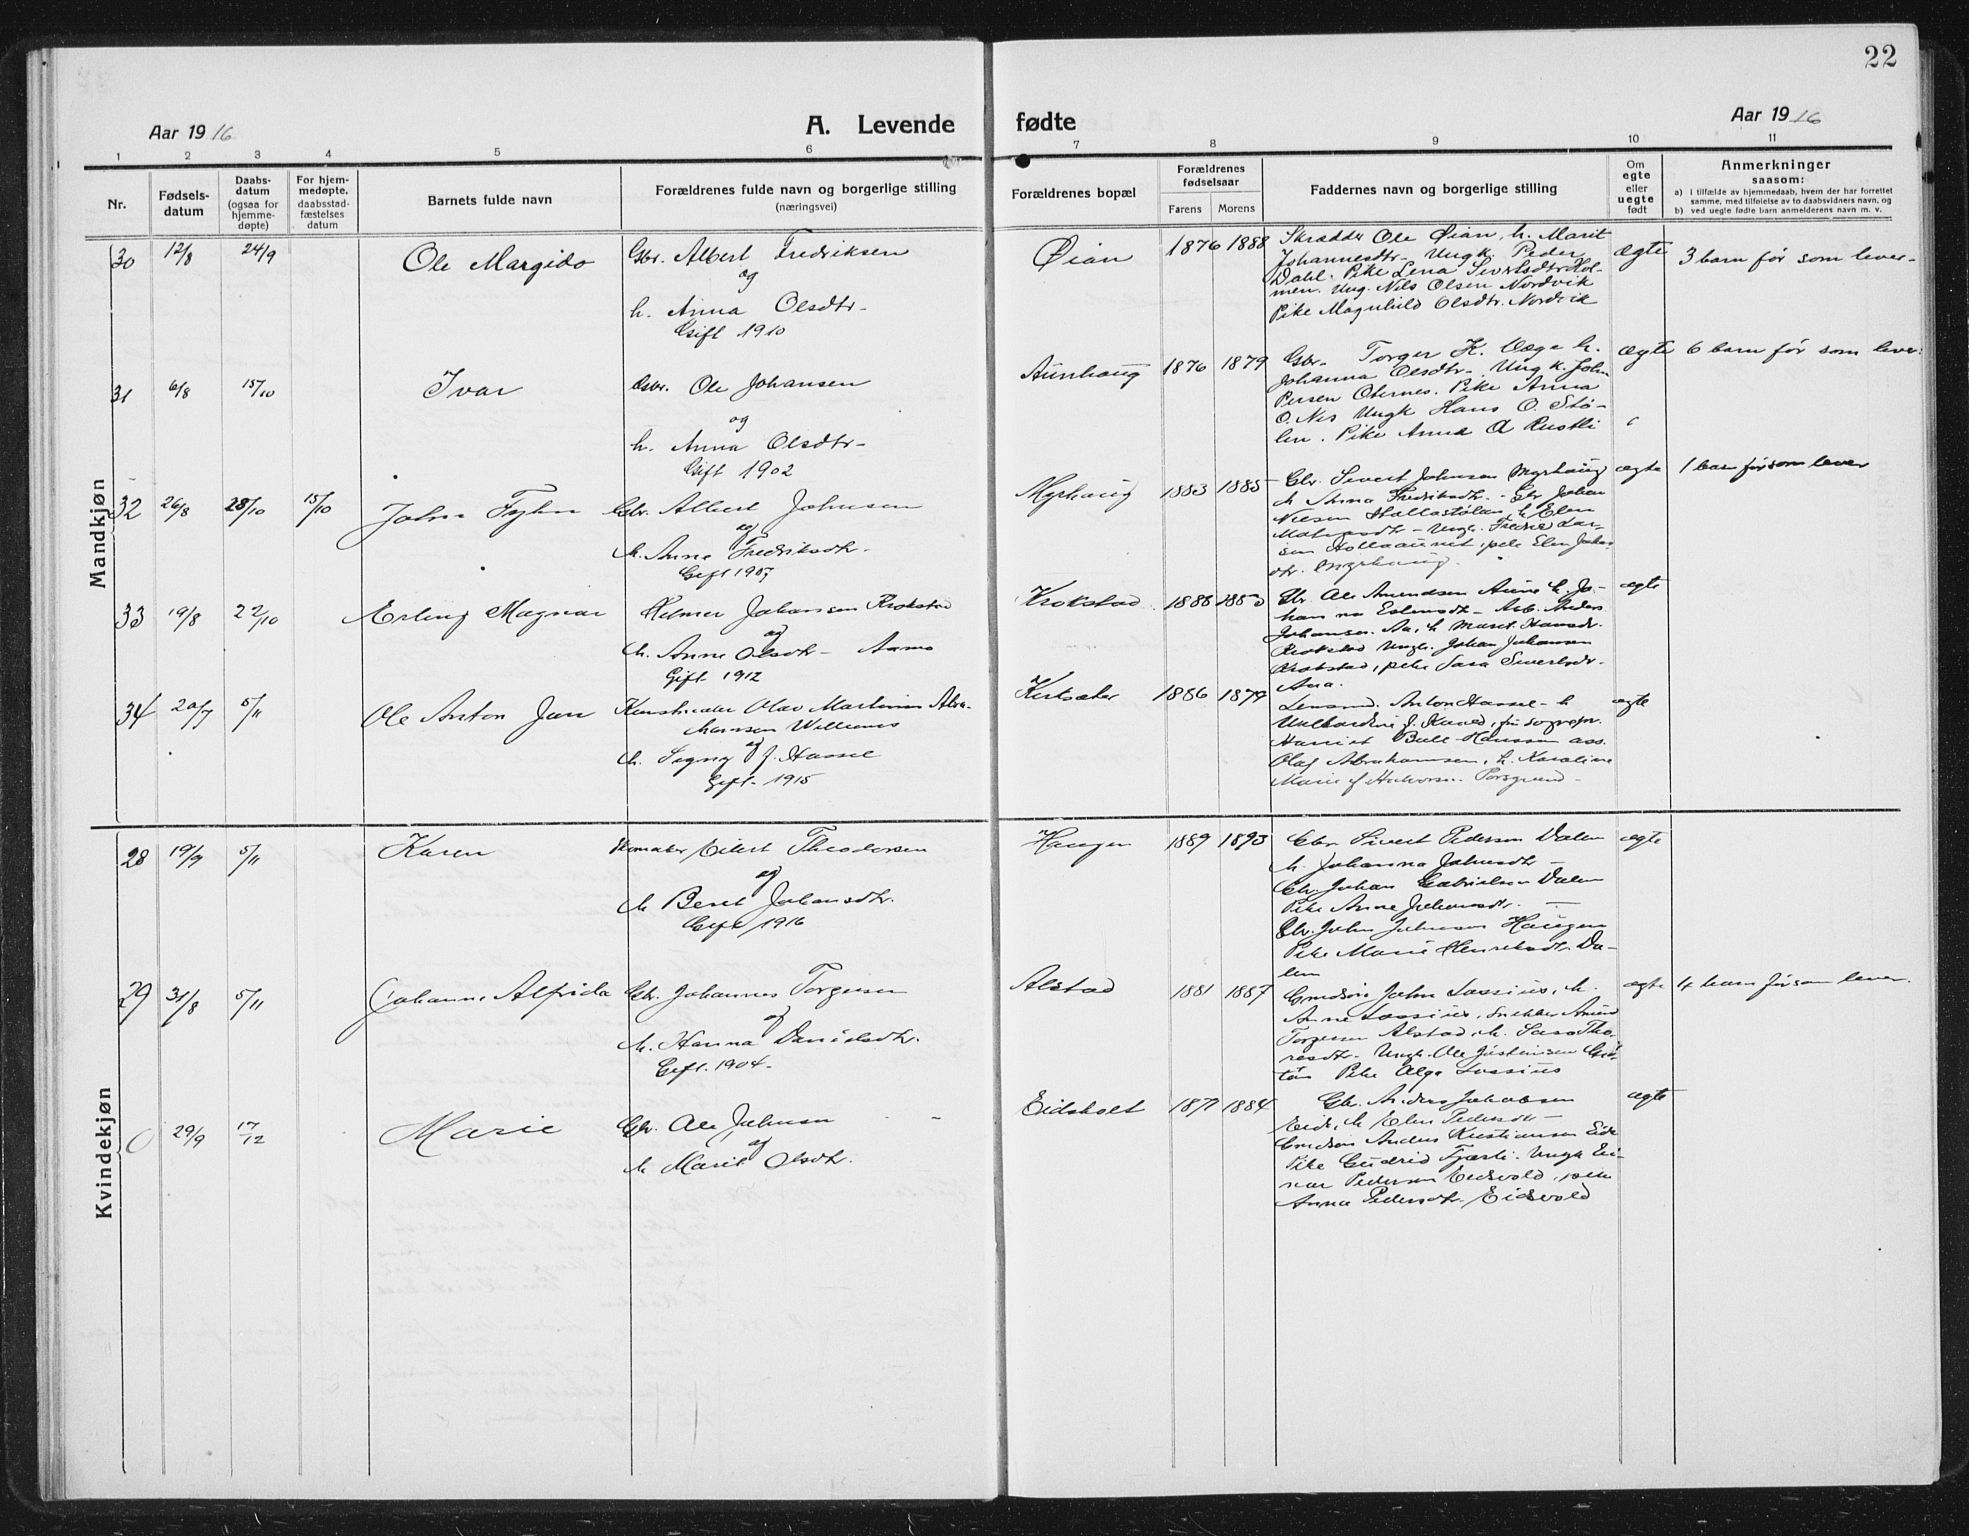 22
Aar 1916
A. Levende fødte
Aar 1916
1 2 3 4 5 6 7 8 9 10 11
Nr.
Fødsels-
datum
Daabs-
datum
(ogsaa for
hjemme-
døpte)
For hjem-
medøpte,
daabsstad-
fæstelses
datum
Barnets fulde navn
Forældrenes fulde navn og borgerlige stilling
(næringsvei)
Forældrenes bopæl
Forældrenes
fødselsaar
Farens Morens
Faddernes navn og borgerlige stilling
Om
egte
eller
uegte
født
Anmerkninger
saasom:
a) i tilfælde av hjemmedaab, hvem der har forrettet
samme, med tilføielse av to daabsvidners navn, og
b) ved uegte fødte barn anmelderens navn m. v.
Mandkjøn
30 12/8 24/9 Ole Margido
Gbr. Albert Fredriksen
og
h. Anna Olsdtr.
Gift 1910
Øian 1876 1888
Skrædder Ole Øian, h. Marit
Johannesdtr. Ungk. Peder
Dahl. Pike Lena Sivertsdtr Hol-
men. Ung. Nils Olsen Nordvik
Pike Magnhild Olsdtr. Nordvik
ægte
3 barn før som lever.
31 6/8 15/10 Ivar
Gbr. Ole Johansen
og
h. Anna Olsdtr.
Gift 1902
Aunhaug 1876 1879
Gbr. Torger K. Vage h.
Johanna Olsdtr. Ungk. John
Persen Oternes. Pike Anna
O. Nes Ungk Hans O. Stø-
len. Pike Anna O Rustli
ægte
6 barn før som lever.
32 26/8 28/10 15/10 John Fyhn
Gbr. Albert Johnsen
og
h. Anna Fredriksdtr.
Gift 1907
Myrhaug 1883 1885
Gbr. Sivert Johnsen Myrhaug
h Anna Fredriksdtr. Gbr Johan
Nilsen Hallastølan, h Elen
Ungk. Fredrik Lar-
sen pike Elen Johns
dtr. Myrhaug.
ægte
1 barn før som lever
33 19/8 22/10 Erling Magnar
Helmer Johansen Krokstad
og
h. Anne Olsdtr. Aamo
Gift 1912
Krokstad 1888
Gbr Ole Amundsen Aune h. Jo-
hanna Estensdtr. Arb. Anders
Johansen Aa, h Marit Hansdr.
Krokstad Ungk. Johan Johansen
Krokstad, pike Sara Sivertsdr.
Ana.
ægte
34 20/7 5/11 Ole Anton Jan
Kunstmaler Olav Martinius Abra-
hamsen Willums
og
h. Signy f. Hassel
Gift 1915
Kirksæter 1886 1879
Lensmd. Anton Hassel h
f. Kuned, fru sognepr.
Harriet Bull Hanssen ass.
Olaf Abrahamsen, h. Karoline
Marie f Halvorsen Porsgrund
ægte
Kvindekjøn
28 19/9 5/11 Karen
Skomaker Eilert Theodorsen
og
h Beret Johansdtr.
Gift 1916
Haugen 1889 1893
Gbr Sivert Pedersen Dalen
h. Johanna Johnsdtr
Gbr. Johan Gabrielsen Dalen
Pike Anne Johansdtr.
Gbr. John Johnsen Haugen
Pike Marie Henriksdtr. Da-
len
ægte
29 31/8 5/11 Johanne Alfrida
Gbr. Johannes Torgersen
og
h. Hanna Danielsdtr.
Gift. 1904.
Alstad 1881 1887
Grdsøn John Lossius, h.
Anne Lossius, Snekker Amund
Torgersen Alstad, h. Sara Tho-
resdtr. Ungk. Ole Jostensen Gjø-
tøn Pike Olga Lossius
ægte
4 barn før som lever.
0 29/9 17/12 Marie
Gbr. Ole Johnsen
og
h Marit Olsdtr.
Eidsholt 1877 1884
Gbr. Anders Jakobsen
Eide, h Elen Pedersdtr
Grdsøn Anders Kristiansen Eide
Pike Gudrid Fjærli. Ungk Ei-
nar Pedersen Eidsvold, pike
Anna Pedersdtr. Eidsvold
ægte